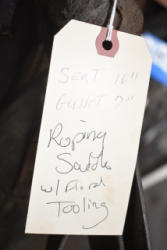 Seat 16"
Gullet 7"
Roping
Saddle
w/ Floral
Tooling